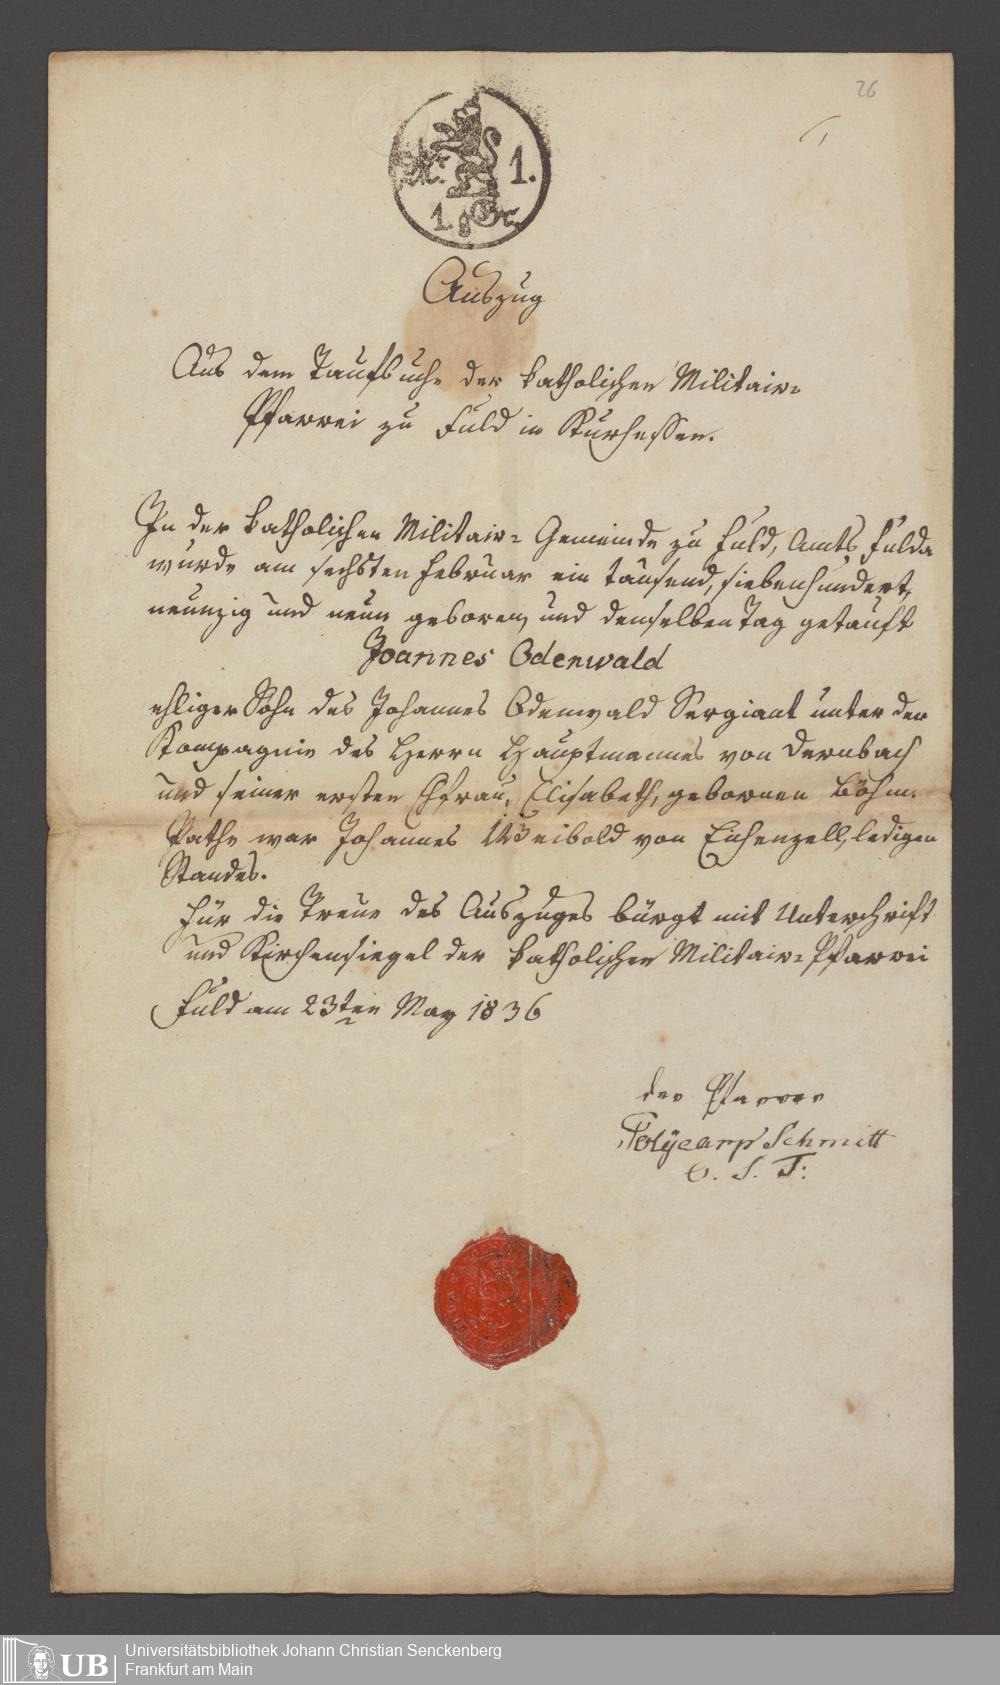 26
1.
1. gGr.
Auszug
Aus dem Taufbuche der katholischen Militair-
Pfarrei zu Fuld in Kurhessen.
In der katholischen Militair- Gemeinde zu Fuld, Amts Fulda
wurde am sechsten Februar ein tausend, siebenhundert,
neunzig und neun geboren, und denselben Tag getauft
Joannes Odenwald
ehliger Sohn des Johannes Odenwald Sergiant unter der
Kompagnie des Herrn Hauptmannes von Dernbach
und seiner ersten Ehfrau, Elisabeth, gebornen Böhm.
Pathe war Johannes Weibold von Eichenzell, ledigen
Standes.
Für die Treue des Auszuges bürgt mit Unterschrift
und Kirchensiegel der katholischen Militair- Pfarrei
Fuld am 23ten May 1836
der Pfarrer
Polÿcarp Schmitt
O. S. F:
UB
Universitätsbibliothek Johann Christian Senckenberg
Frankfurt am Main